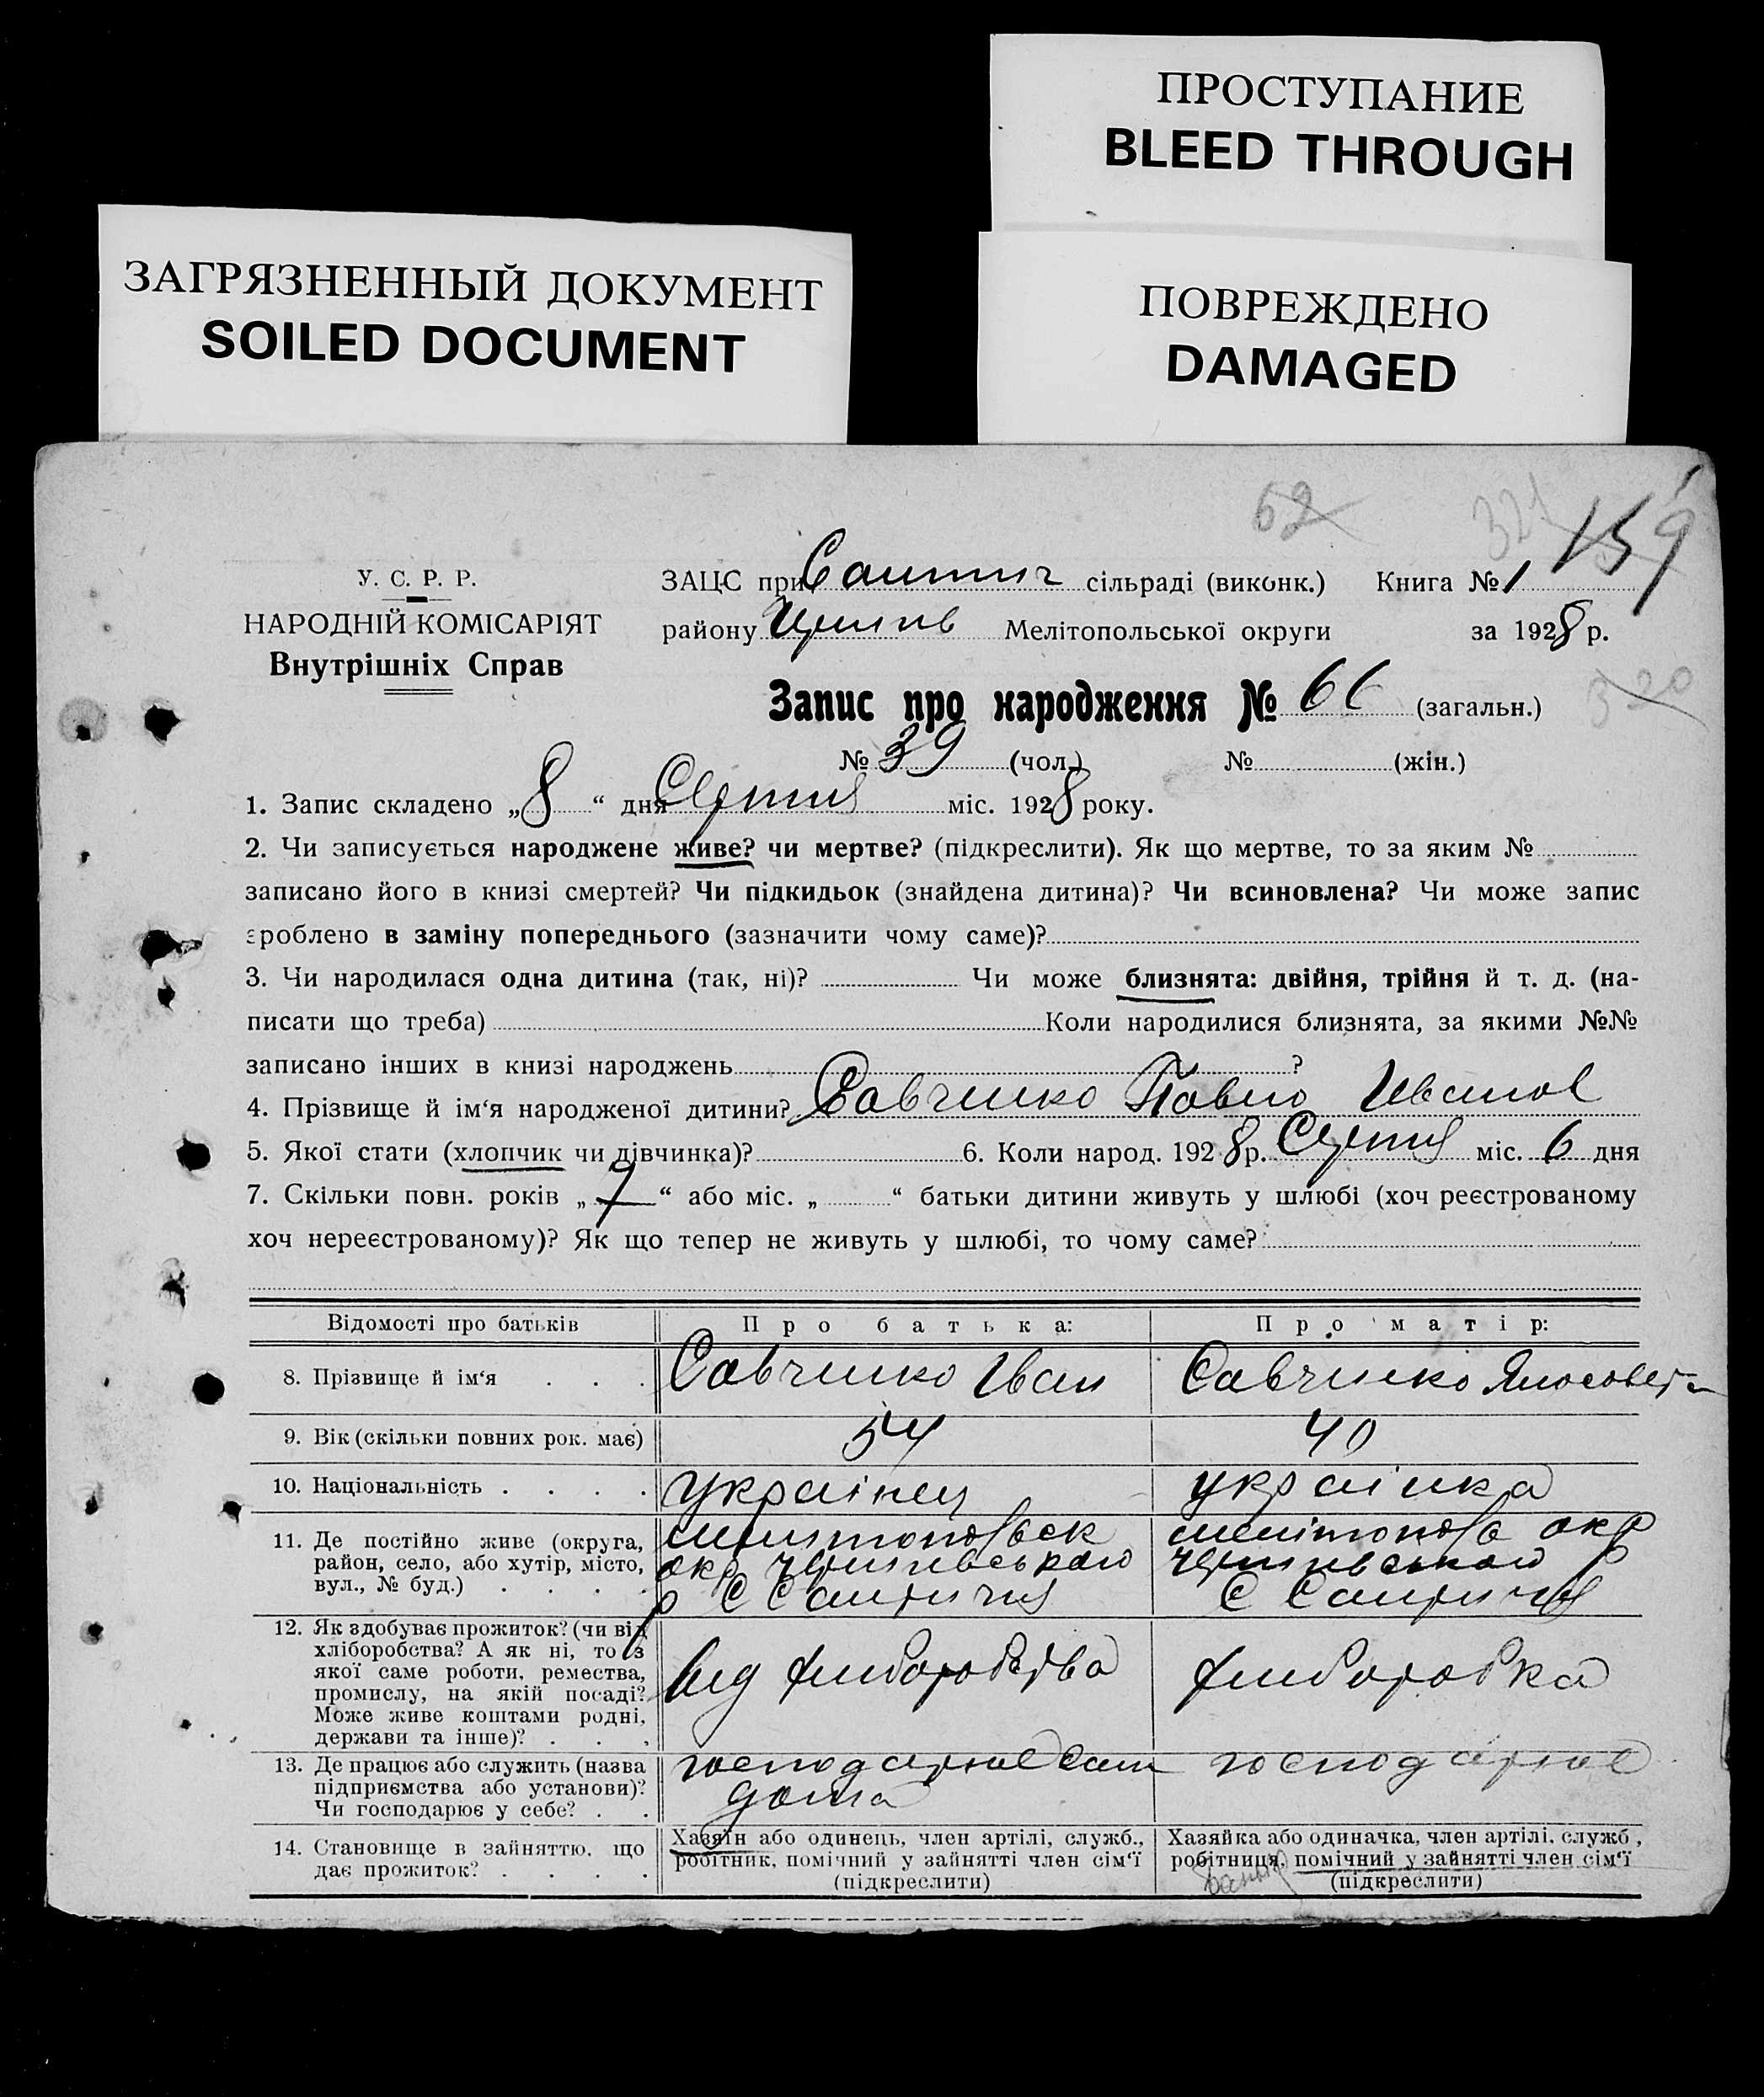 ПРОСТУПАНИЕ
BLEED THROUGH
ЗАГРЯЗНЕННЫЙ ДОКУМЕНТ
SOILED DOCUMENT
ПОВРЕЖДЕНО
DAMAGED
62 321 159
У. С. Р. Р.
НАРОДНІЙ КОМІСАРІЯТ
Внутрішніх Справ
ЗАЦС при сільраді (виконк.) Книга № 1
району Мелітопольської округи за 1928 р.
320
Запис про народження № 66 (загальн.)
№ 39 (чол.) № (жін.)
1. Запис складено „8“ дня Серпня міс. 1928 року.
2. Чи записується народжене живе? чи мертве? (підкреслити). Як що мертве, то за яким №
записано його в книзі смертей? Чи підкидьок (знайдена дитина)? Чи всиновлена? Чи може запис
зроблено в заміну попереднього (зазначити чому саме)?
3. Чи народилася одна дитина (так, ні)? Чи може близнята: двійня, трійня й т. д. (на-
писати що треба) Коли народилися близнята, за якими №№
записано інших в книзі народжень ?
4. Прізвище й ім‘я народженої дитини? Савченко Павло Иванов
5. Якої стати (хлопчик чи дівчинка)? 6. Коли народ. 1928 р. Серпня міс. 6 дня
7. Скільки повн. років „7“ або міс. „ “ батьки дитини живуть у шлюбі (хоч реєстрованому
хоч нереєстрованому)? Як що тепер не живуть у шлюбі, то чому саме?
Відомості про батьків Про батька: Про матір:
8. Прізвище й ім‘я . . . Савченко Іван Савченко
9. Вік (скільки повних рок. має) 54 40
10. Національність . . . . українец українка
11. Де постійно живе (округа,
район, село, або хутір, місто,
вул., № буд.) . . . .
мелітопольск мелітополь окр
окр р
р С С
12. Як здобуває прожиток? (чи від
хліборобства? А як ні, то з
якої саме роботи, ремества,
промислу, на якій посаді?
Може живе коштами родні,
держави та інше)? . . .
від хлиборобства хлиборобка
13. Де працює або служить (назва
підприємства або установи)?
Чи господарює у себе? . .
господарює сам господарює
дома
14. Становище в зайняттю, що
дає прожиток? . . . .
Хазяїн або одинець, член артілі, служб.,
робітник, помічний у зайнятті член сім‘ї
(підкреслити)
Хазяйка або одиначка, член артілі, служб,
робітниця, помічний у зайнятті член сім‘ї
(підкреслити)